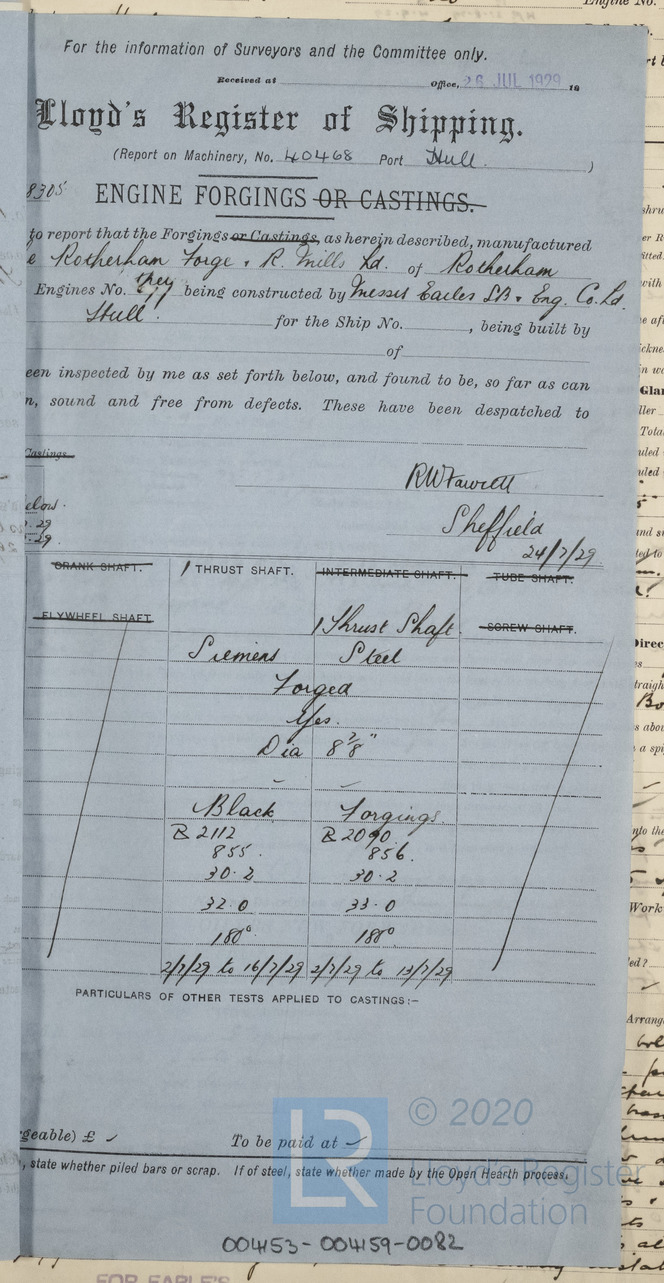 For the information of Surveyors and the Committee only.
Received at Office, 26 JUL 1929 19
Lloyd's Register of Shipping.
(Report on Machinery, No. 40468 Port Hull. )
8305
ENGINE FORGINGS OR CASTINGS.
to report that the Forgings or Castings, as herein described, manufactured
e Rotherham Forge & R. Mills Ld. of Rotherham
Engines No. being constructed by Messrs Earles SB & Eng. Co. Ld.
Hull. for the Ship No. , being built by
of
een inspected by me as set forth below, and found to be, so far as can
n, sound and free from defects. These have been despatched to
Castings
RW Fawcett
elow.
Sheffield
.29
.29
24/7/29
CRANK SHAFT. 1 THRUST SHAFT. INTERMEDIATE SHAFT. TUBE SHAFT.
FLYWHEEL SHAFT 1 Thrust Shaft. SCREW SHAFT.
Siemens Steel
Forged
Yes.
Dia 8 7/8"
Black Forgings.
B 2112 B 2090.
855. 856.
30.2 30.2
32.0 33.0
180° 180°
2/7/29 to 16/7/29 2/7/29 to 13/7/29
PARTICULARS OF OTHER TESTS APPLIED TO CASTINGS:—
geable) £ ✓ To be paid at ✓
, state whether piled bars or scrap. If of steel, state whether made by the Open Hearth process.
LR
© 2020
Lloyd's Register
Foundation
004153-004159-0082